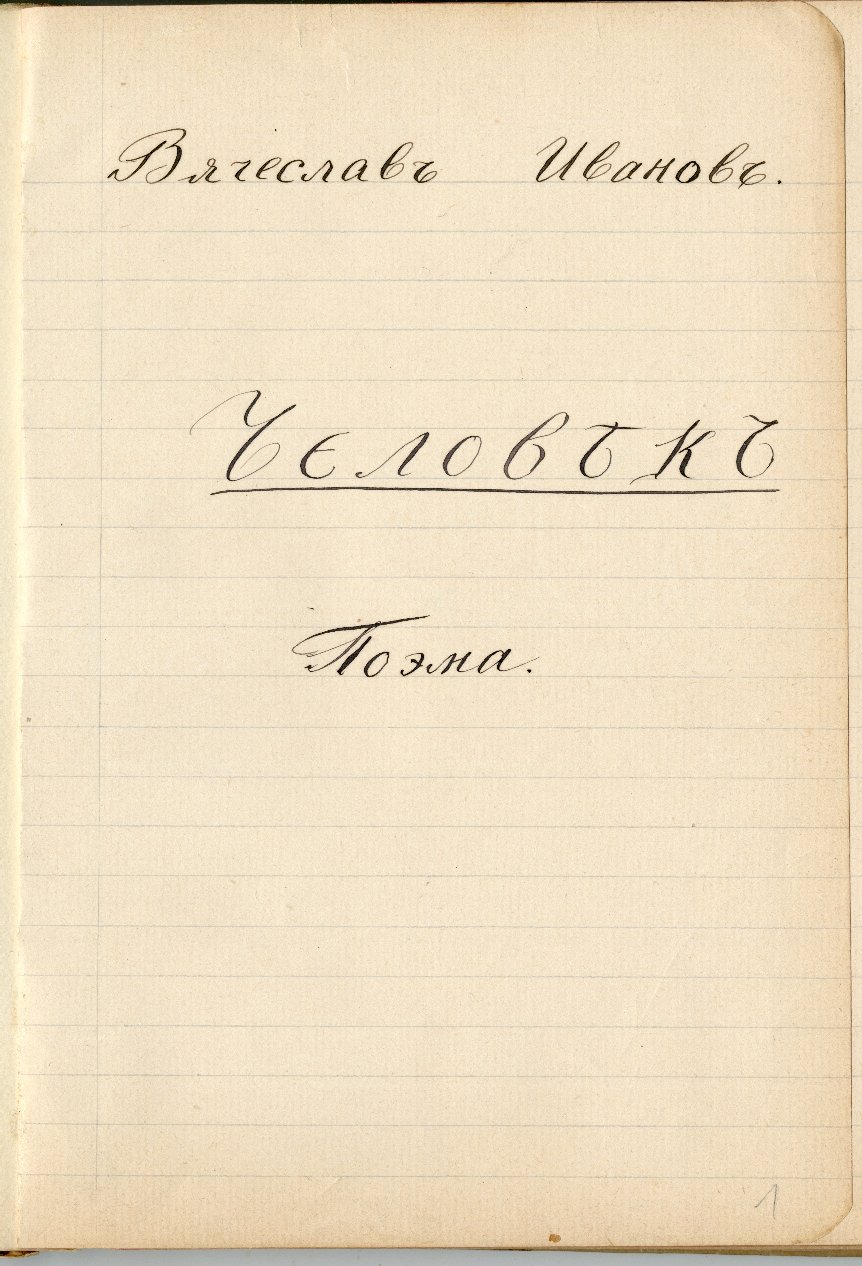 Вячеславъ Ивановъ.
Человѣкъ
Поэма.
1